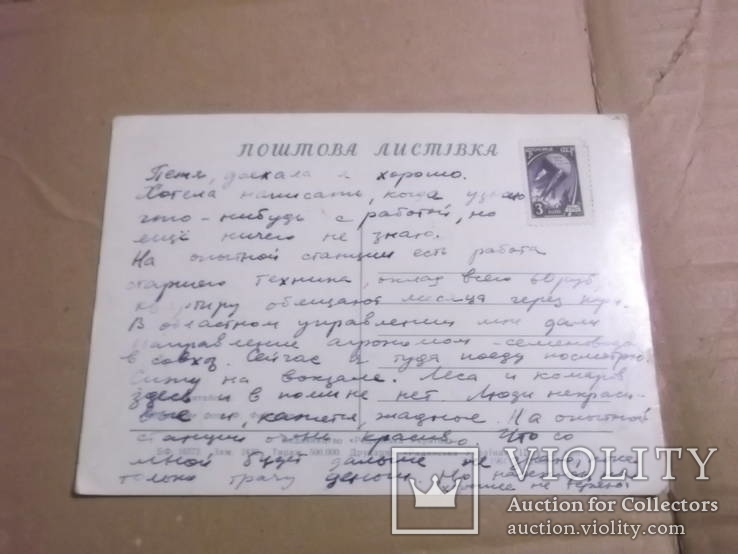 ПОШТОВА ЛИСТІВКА
Петя, доехала я хорошо.
Хотела написать, когда узнаю
что-нибудь с работой, но
ещё ничего не знаю.
На опытной станции есть работа
старшего техника, оклад всего 60 руб,
квартиру обещают месяца через
В областном управлении мне дали
направление агрономом-семеноводом
в совхоз. Сейчас я туда поеду посмотрю.
Сижу на вокзале. Леса и комаров
здесь и в помине нет. Люди некраси-
вые и, кажется, жадные. На опытной
станции очень красиво. Что со
мной будет дальше не знаю,
только трачу деньги. Но
не теряю.
3
500.000
VIOLITY
Auction for Collectors
auction.violity.com